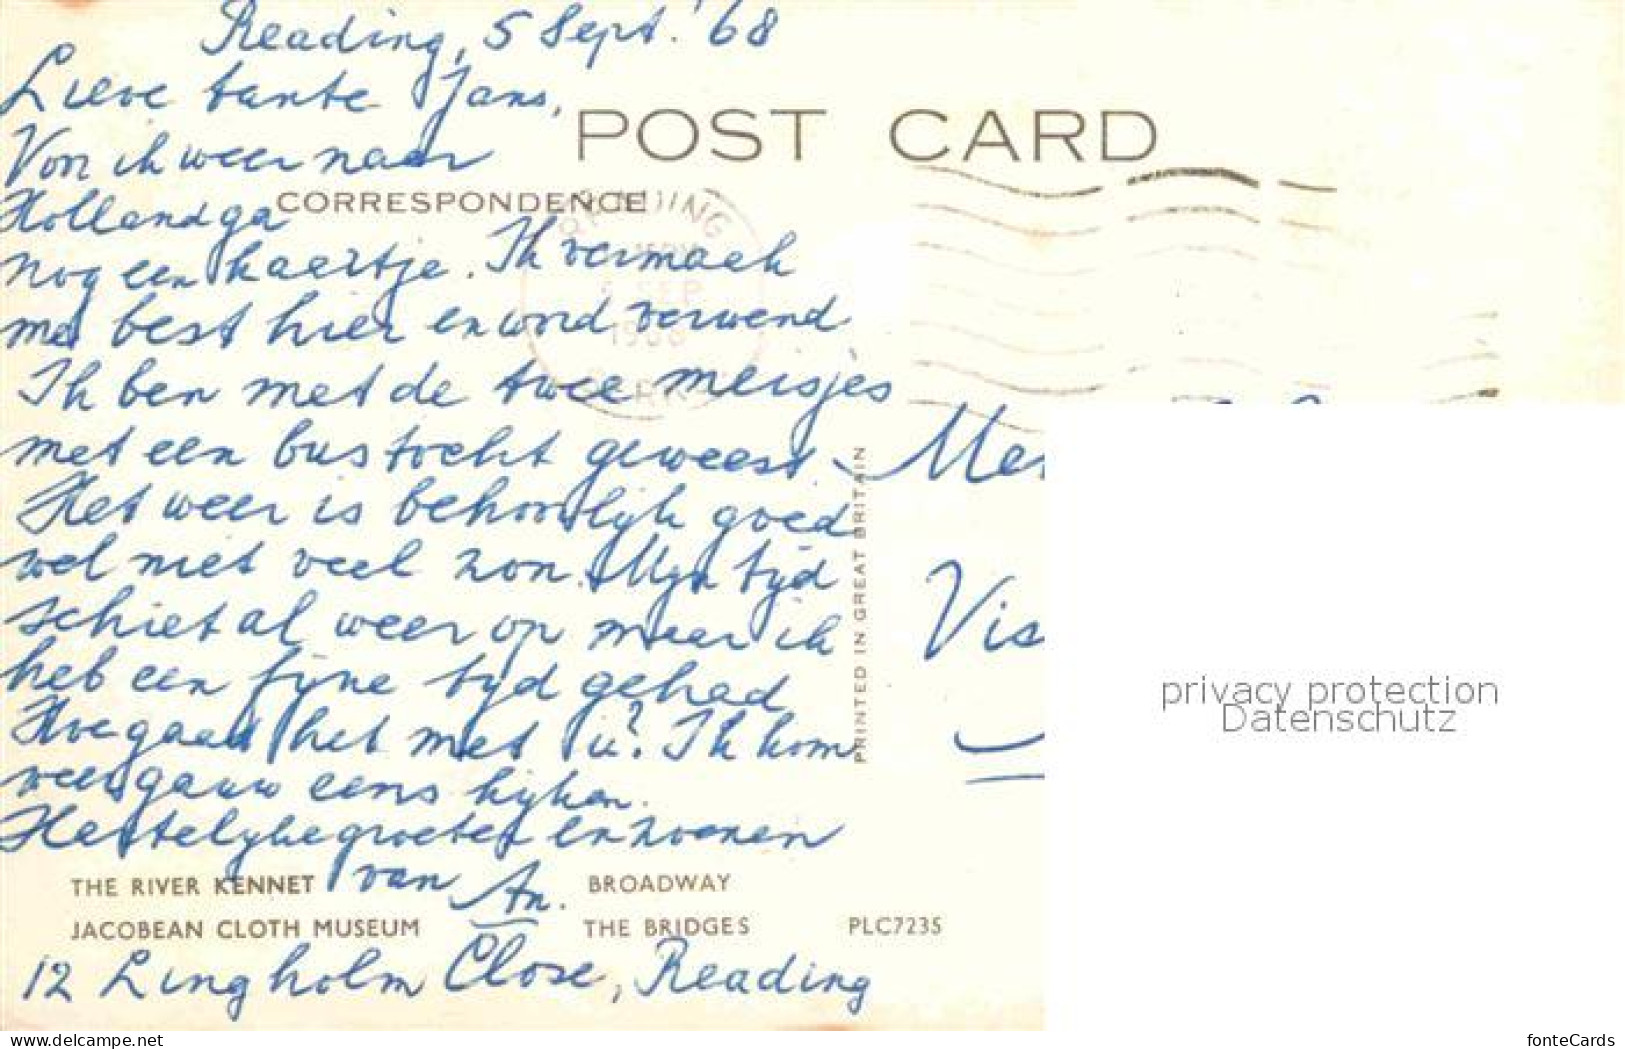 Reading, 5 Sept. '68
Lieve tante Jans,
POST CARD
Voor ik weer naar
Holland ga
CORRESPONDENCE
READING
nog een kaartje. Ik vermaak
5 SEP
me best hier en word verwend.
1968
Ik ben met de twee meisjes
met een bustocht geweest.
Het weer is behoorlijk goed
wel niet veel zon. Mijn tijd
schiet al weer op maar ik
heb een fijne tijd gehad
Hoe gaat het met u? Ik kom
weer gauw eens kijken.
Hartelijke groeten en zoenen
van An.
PRINTED IN GREAT BRITAIN
Vis
privacy protection
Datenschutz
THE RIVER KENNET BROADWAY
JACOBEAN CLOTH MUSEUM THE BRIDGES PLC7235
12 Lingholm Close, Reading
www.delcampe.net fonteCards